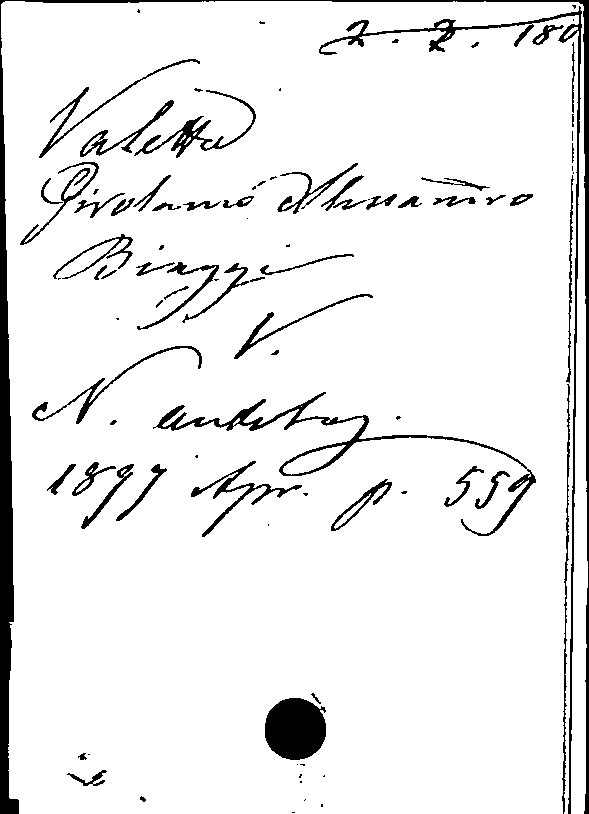 Z. Z. 180
Valetta
Girolamo Alessandro
Biaggi
V.
N. antolog.
1897 Apr. p. 559